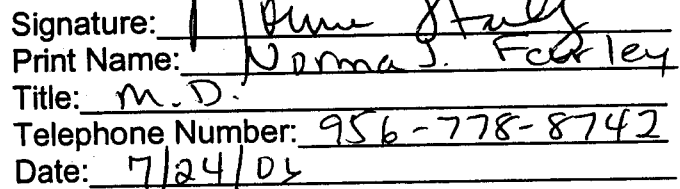 Signature:
Print Name: Norma J. Farley
Title: M.D.
Telephone Number: 956-778-8742
Date: 7/24/0